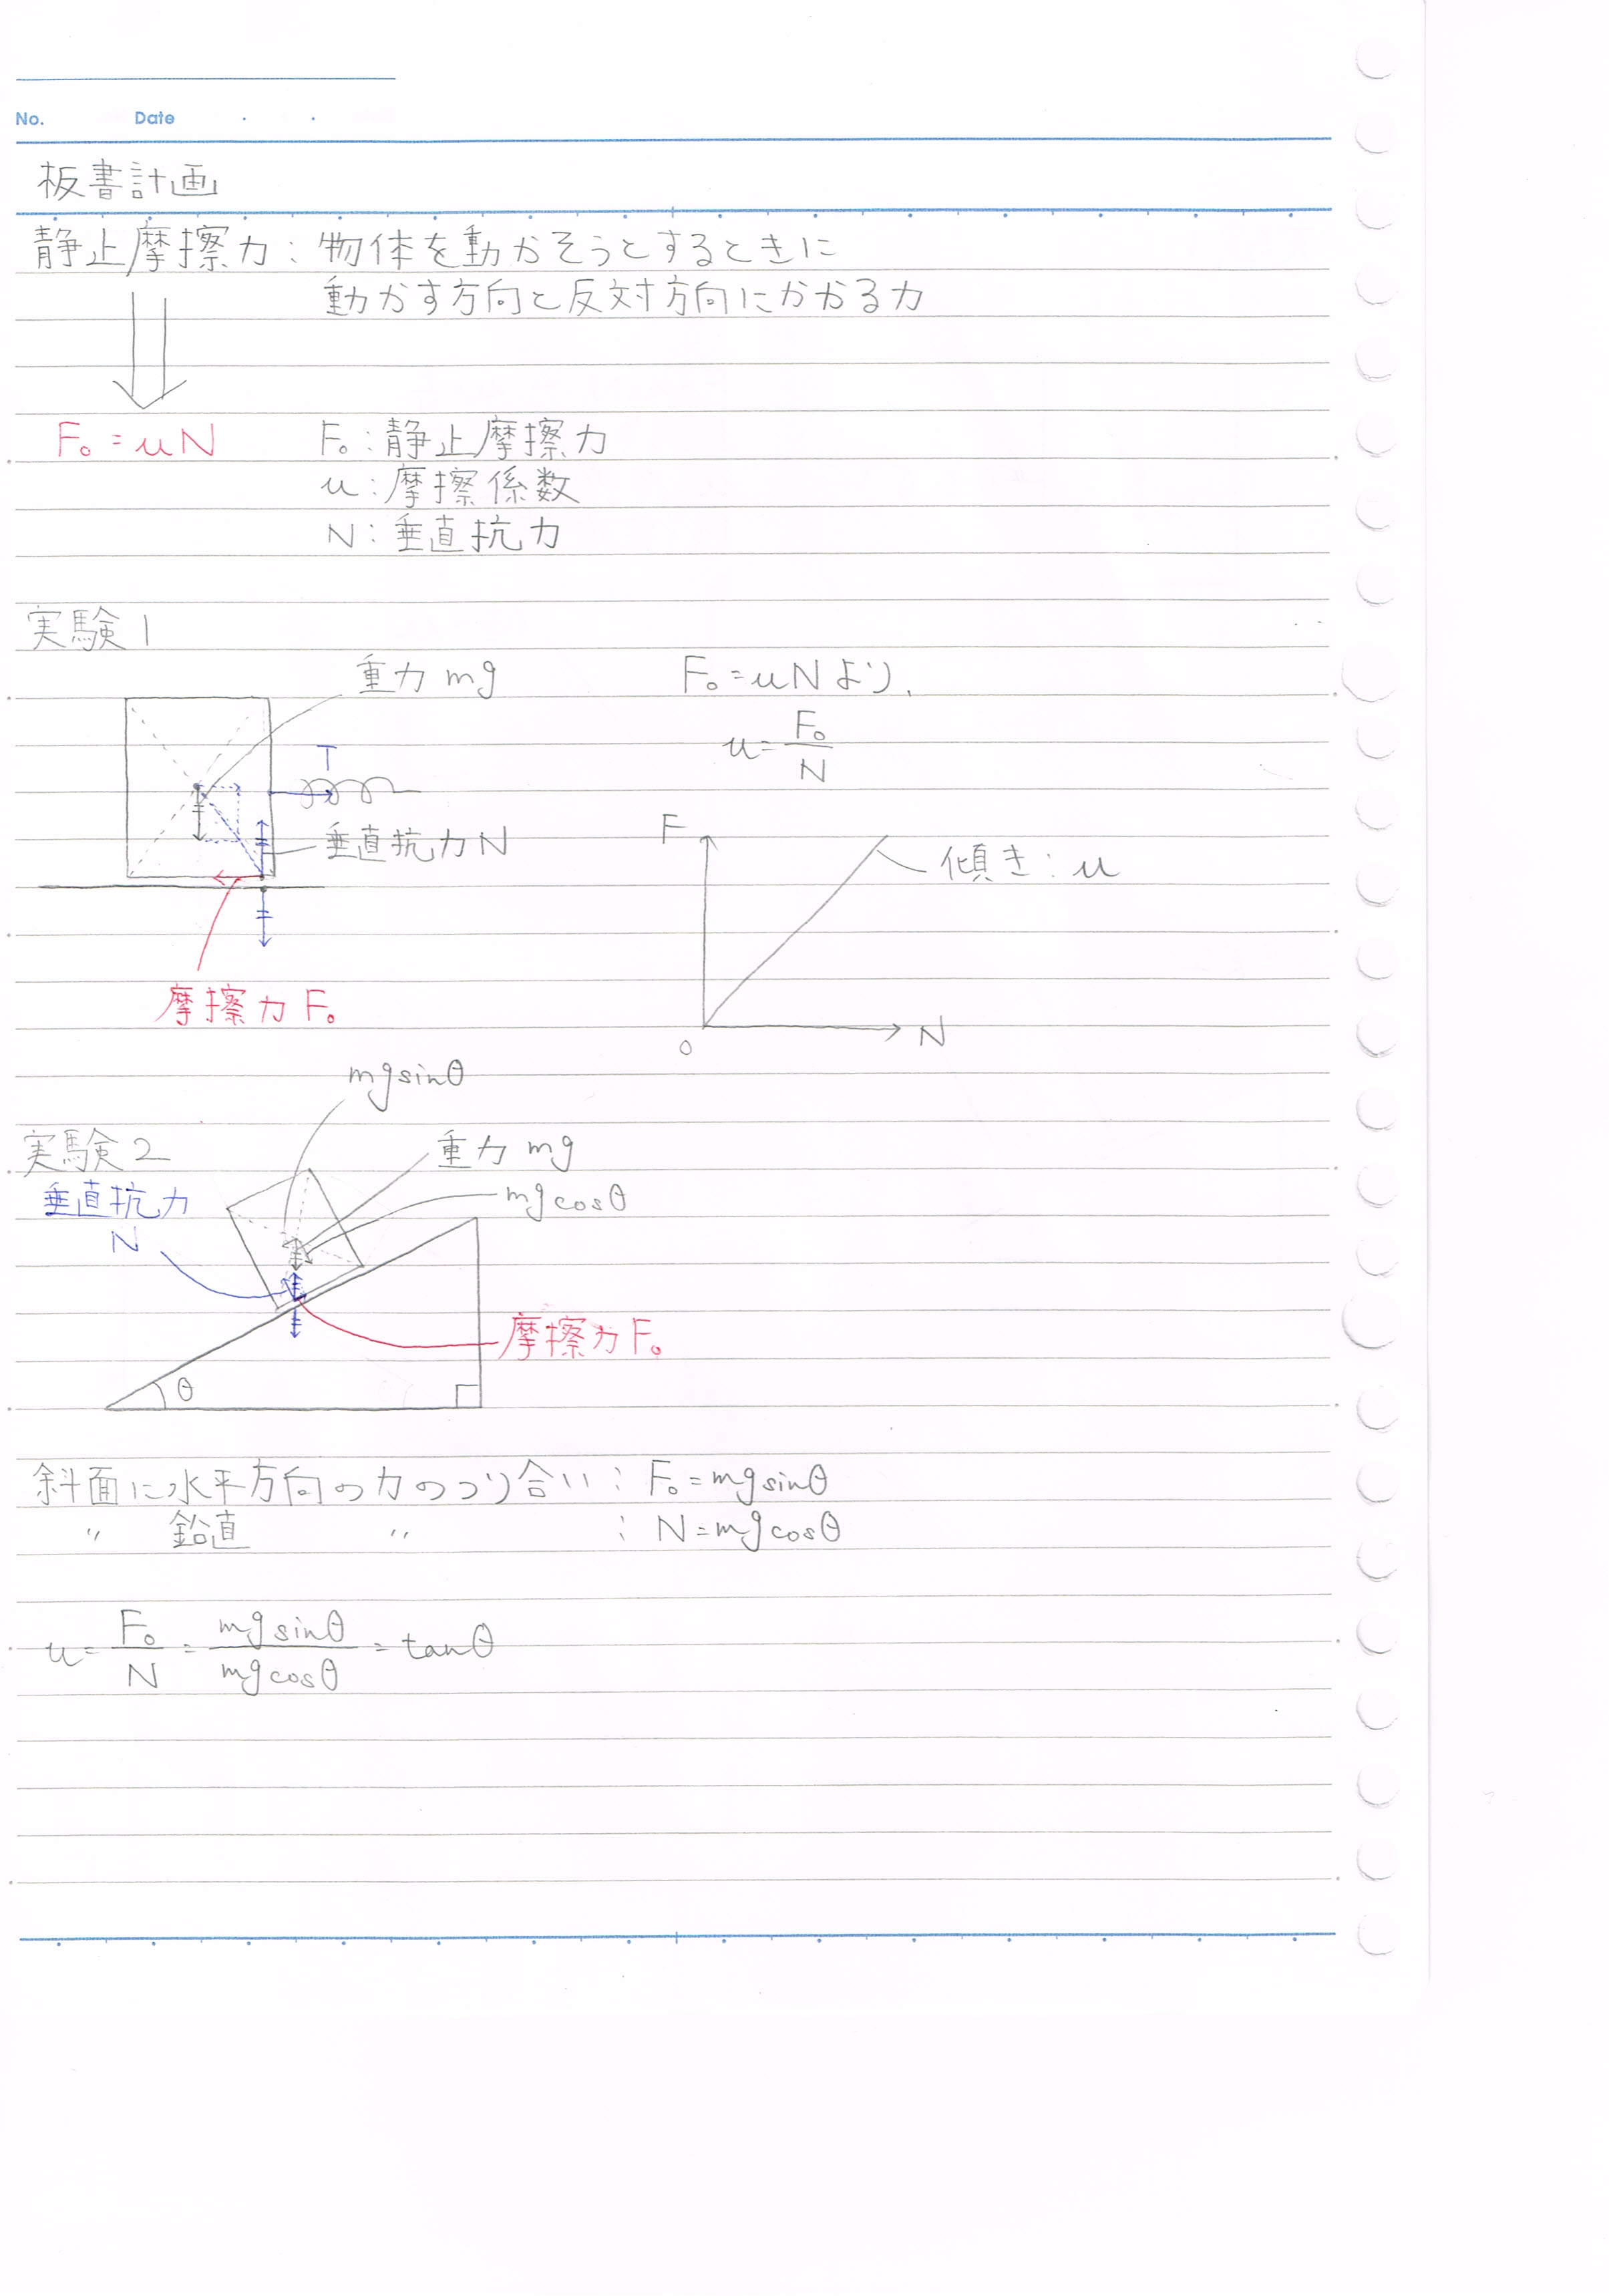 No. Date
板書計画
静止摩擦力:物体を動かそうとするときに
動かす方向と反対方向にかかる力
F₀=μN F₀:静止摩擦力
μ:摩擦係数
N:垂直抗力
実験1
重力mg
F₀=μNより、
μ=F₀/N
T
垂直抗力N
摩擦力F₀
F
傾き:μ
0
N
mgsinθ
実験2
重力mg
mgcosθ
垂直抗力
N
摩擦力F₀
θ
斜面に水平方向の力のつり合い:F₀=mgsinθ
〃 鉛直 〃 :N=mgcosθ
μ=F₀/N=mgsinθ/mgcosθ=tanθ